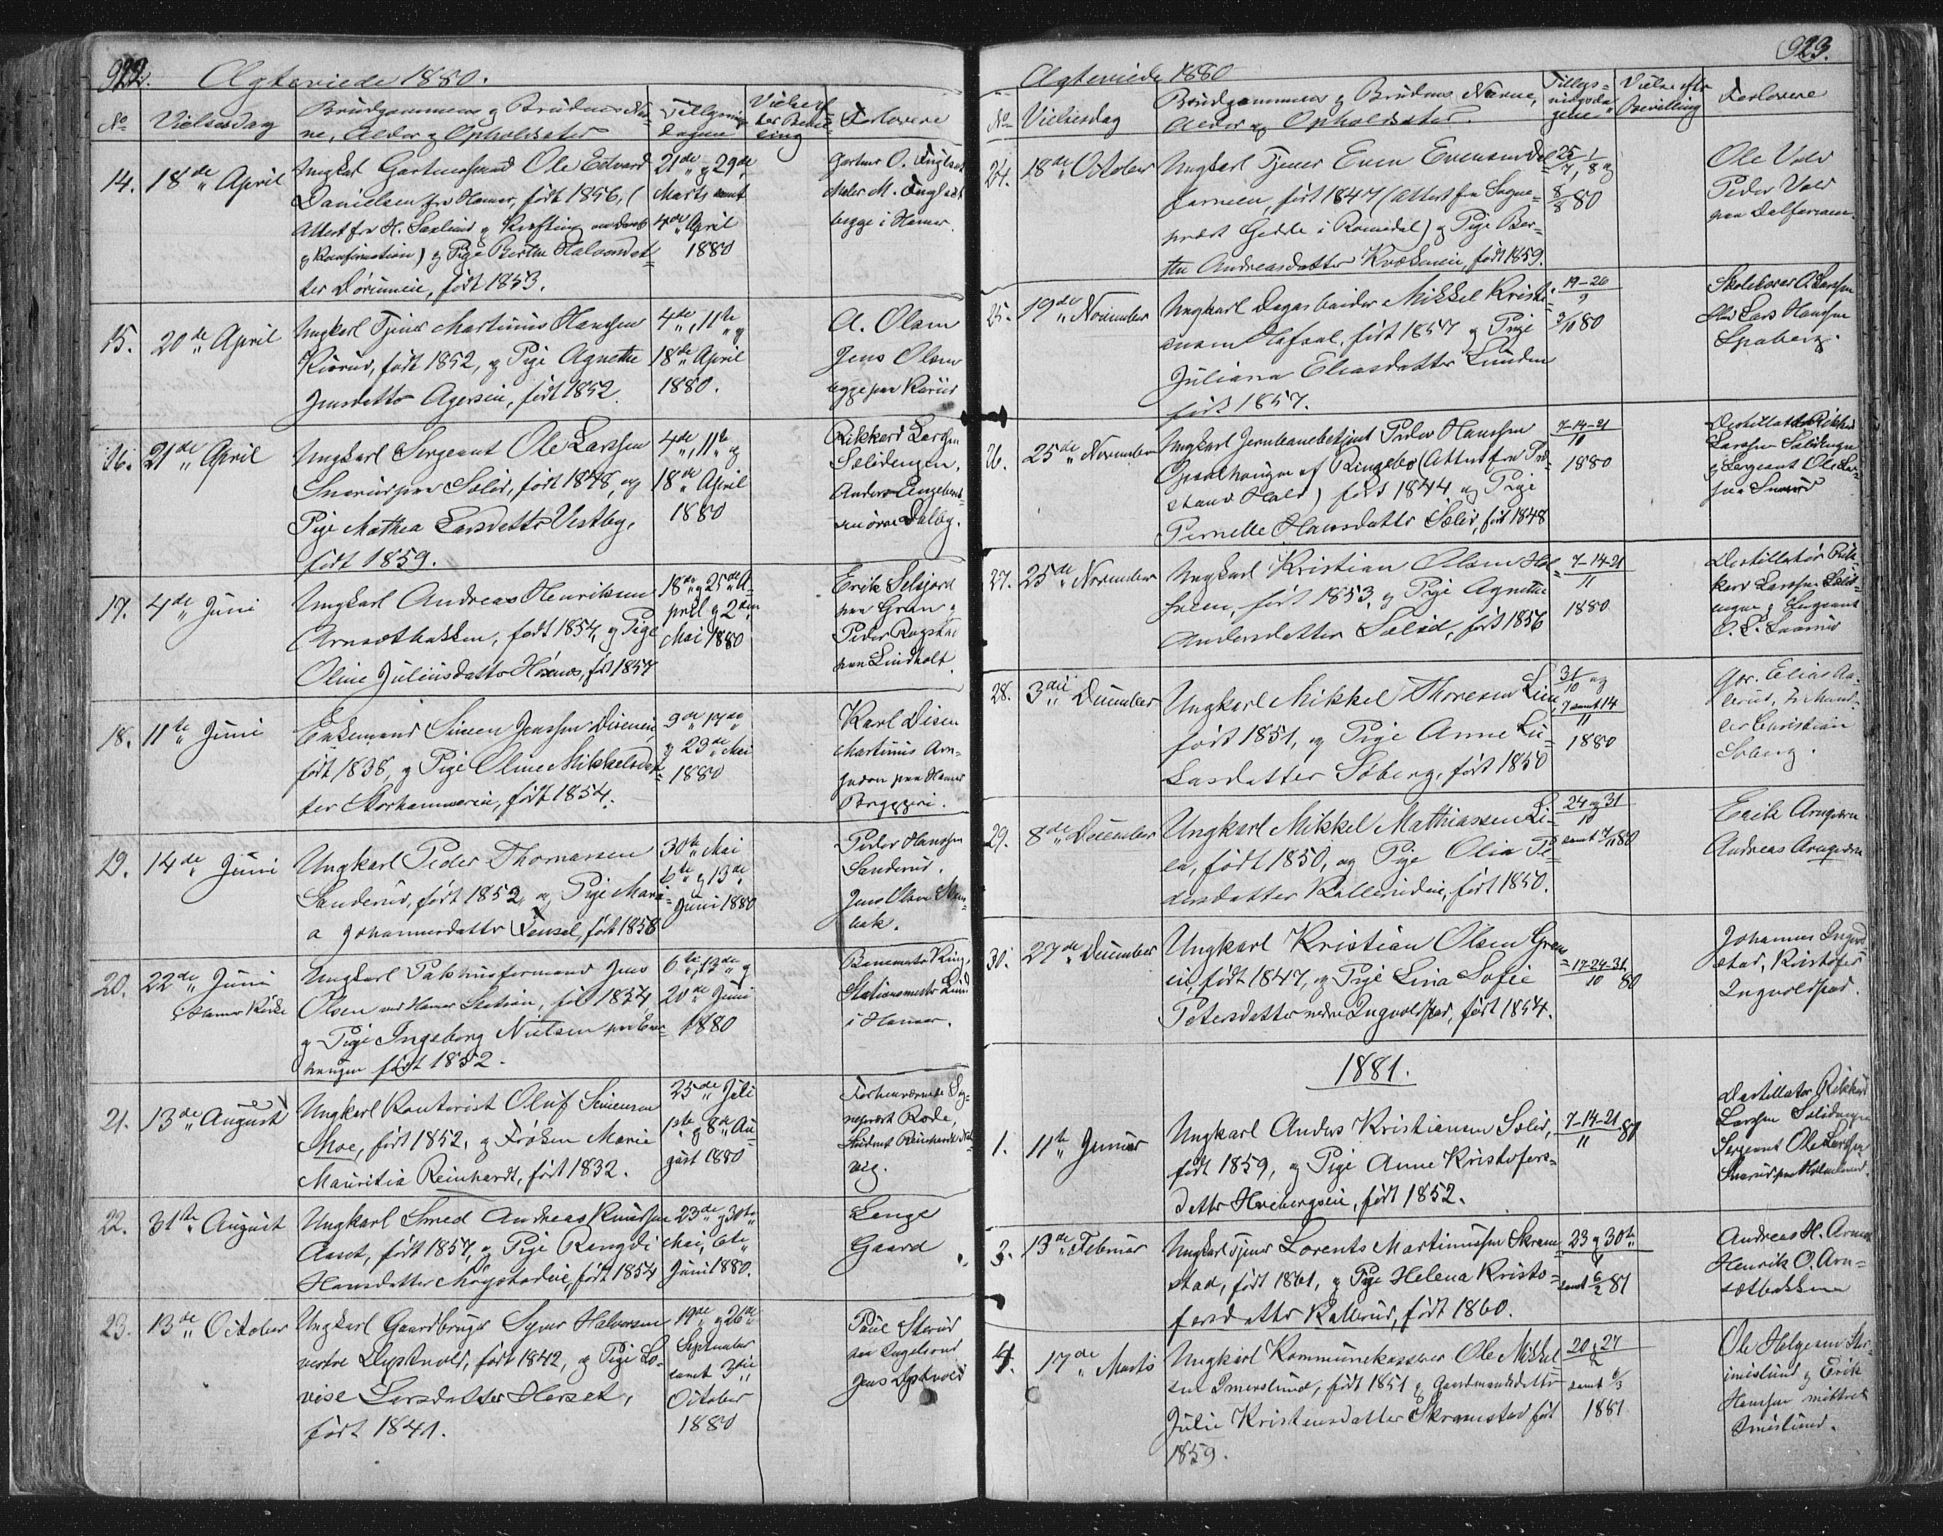 922.
Ægteviede 1880.
No
Vielsesdag
Brudgommens og Brudens Nav-
ne, Alder og Opholdssted
Tillysnings
Dagene
Vielse ef-
ter Bevil-
ling
Forlovere
14. 18de April
Ungkarl Gartnersvend Ole Edvard
Danielsen fra Hamar, født 1856, (
Attest fra H. Saxlund og Kræfting om Daab
og Konfirmation) og Pige Berthe Halvorsdat-
ter Dørumeie, født 1853.
21de og 29de
Marts samt
4de April
1880
Gartner O. Fuglset
Maler M. Fuglset
begge i Hamar.
15. 20de April
Ungkarl Tjener Martinus Hanssen
Kiørud, født 1852, og Pige Agnethe
Jensdatter Agerseie, født 1852.
4de, 11te og
18de April
1880.
A. Olsen
Jens Olsen
begge paa Kørud
16. 21de April
Ungkarl Sergeant Ole Larssen
Snarud paa Solid, født 1848, og
Pige Mathea Larsdatter Vestby,
født 1859.
4de, 11te og
18de April
1880
Rikkard Larssen
Solidengen,
Anders Engebret-
sen øvre Dalby.
17. 4de Juni
Ungkarl Andreas Henriksen
Arnsætbakken, født 1854, og Pige
Oline Juliusdatter Hosmos, født 1857
18de og 25de A-
pril og 2den
Mai 1880
Erik Selsjord
paa Gran og
Peder Rogstad
paa Lindholt.
18. 11te Juni
Enkemand Simen Jenssen Diseneie,
født 1838, og Pige Oline Mikkelsdat-
ter Storhammereie, født 1854.
9de 17de
og 23de Mai
1880
Karl Disen
Martinus Arn-
paa Hamar
Bryggeri.
19. 14de Juni
Ungkarl Peder Thomassen
Sanderud, født 1852, og Pige Mari-
a Johannesdatter Femsel, født 1858
30te Mai
6te og 13de
Juni 1880
Peder Hanssen
Sanderud.
Jens Olsen
bak.
20. 22de Juni
i Hamar Kirke
Ungkarl Pakhusformand Jens
Olsen ved Hamar Station, født 1854,
og Pige Ingeborg Nielsen paa
haugen født 1852.
6te, 13de og
20de Juni
1880
Banemester Ring,
Stationsmester Lund
i Hamar.
21. 13de August
Ungkarl Kontorist Oluf Simensen
Moe, født 1852, og Frøken Marie
Mauritia Reinhardt, født 1832.
25de Juli
1ste og 8de Au-
gust 1880
Forhenværende Sog-
nepræst Rode,
Student Reinhardt
vig.
22. 31te August
Ungkarl Smed Andreas Knudsen
Aamt, født 1857, og Pige Rangdi
Hansdatter Møystadeie, født 1854
23de og 30te
Mai, 6te
Juni 1880.
Lange
Gaard
23. 13de October
Ungkarl Gaardbruger Syver Halvorsen
vestre Dystvold, født 1842, og Pige Lo-
vise Larsdatter Horset,
født 1841.
19de og 26de
September
samt 3die
October
1880
Paul Sterud
paa Ingelsrud
Jens Dystvold
923.
Ægteviede 1880
No
Vielsesdag
Brudgommens og Brudens Navne,
Alder og Opholdssted.
Tillys-
ningsda-
gene
Vielse efter
Bevilling
Forlovere
24. 18de October
Ungkarl Tjener Even Evensen Dal-
farmeen, født 1847 (Attest fra Sogne-
præst Gedde i Romedal) og Pige Ber-
the Andreasdatter Kvækeneie, født 1859.
25/7, 1/8 og
8/8 80
Ole Vold
Peder Vold
paa Dalfarmen.
25. 19de November
Ungkarl Dagarbeider Mikkel Kristi-
ansen Hafsal, født 1857 og Pige
Juliana Eliasdatter Lunden
født 1857.
19-26/9
3/10 80
Skolelærer O. Larssen
Lars Hanssen
Spaberg.
26. 25de November
Ungkarl Jernbanebetjent Peder Hanssen
Opsalhaugen af Ringebo (Attest fra Pro-
stand Hald) født 1844 og Pige
Pernelle Hansdatter Solid, født 1848
7-14-21/10
1880
Destillatør Rikkard
Larssen Solidengen
og Sergeant Ole Lar-
ssen Snarud
27. 25de November
Ungkarl Kristian Olsen Hol-
steen, født 1853, og Pige Agnethe
Andersdatter Solid, født 1856
7-14-21/11
1880
Destillatør Rik-
kard Larssen Solid-
engen og Sergeant
O. L. Snarud
28. 3die December
Ungkarl Mikkel Thoresen Lie,
født 1851, og Pige Anne Lu-
casdatter Soberg, født 1850
31/10 og
7 samt 14/11
1880
Gbr. Elias Aa-
lerud,
Christian
Soberg.
29. 8de December
Ungkarl Mikkel Mathiassen Li-
en, født 1850, og Pige Olia Pe-
dersdatter Kallerudeie, født 1850.
24 og 31/10
samt 7/11 80
Enok Arnesen
Andreas Arnesen
30. 27de December
Ungkarl Kristian Olsen Gran-
eie, født 1847, og Pige Lina Sofie
Petersdatter nedre Ingvoldstad, født 1854.
17-24-31/10 80
Johannes Ingvold-
stad, Kristofer
Ingvoldstad.
1881.
1. 11te Januar
Ungkarl Anders Kristiansen Solid,
født 1859, og Pige Anne Kristofers-
datter Hvebergseie, født 1852.
7-14-21/11 80
Destillatør Rikkard
Larssen Solidengen
Sergeant Ole Larssen
Snarud paa Holmlund.
3. 13de Februar
Ungkarl Tjener Lorents Martinussen Skram-
stad, født 1861, og Pige Helena Kristo-
fersdatter Kallerud, født 1860.
23 og 30te/1
samt 6/2 81
Andreas H. Arnsæt
Henrik O. Arn-
sætbakken
4. 17de Marts
Ungkarl Kommunekasserer Ole Mikkel-
sen Imerslund, født 1851 og Gaardmandsdatter
Julie Kristensdatter Skramstad født
1859.
20 og 27/2
samt 6/3
1881
Ole Helgesen
Imerslund og Erik
Hanssen mittre
Imerslund.